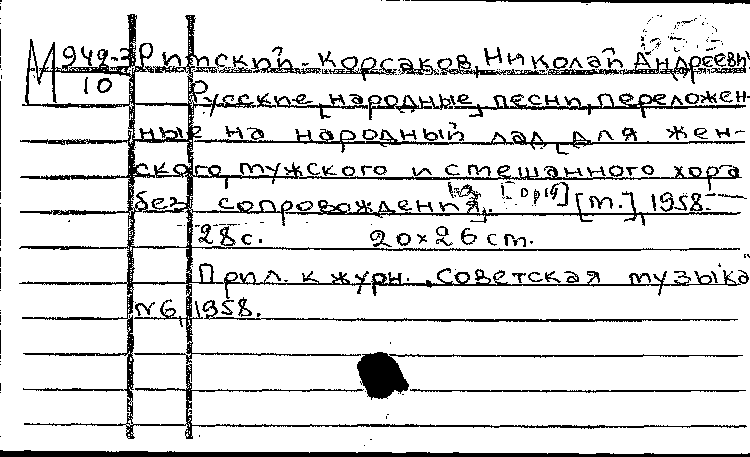 М 949-3 Римский-Корсаков, Николай Андреевич
10 Русские народные песни, переложен-
ные на народный лад для жен-
ского, мужского и смешанного хора
без сопровождения. [ориг] [М.], 1958.
28 с. 20×26 см.
Прил. к журн. "Советская музыка"
№6, 1958.